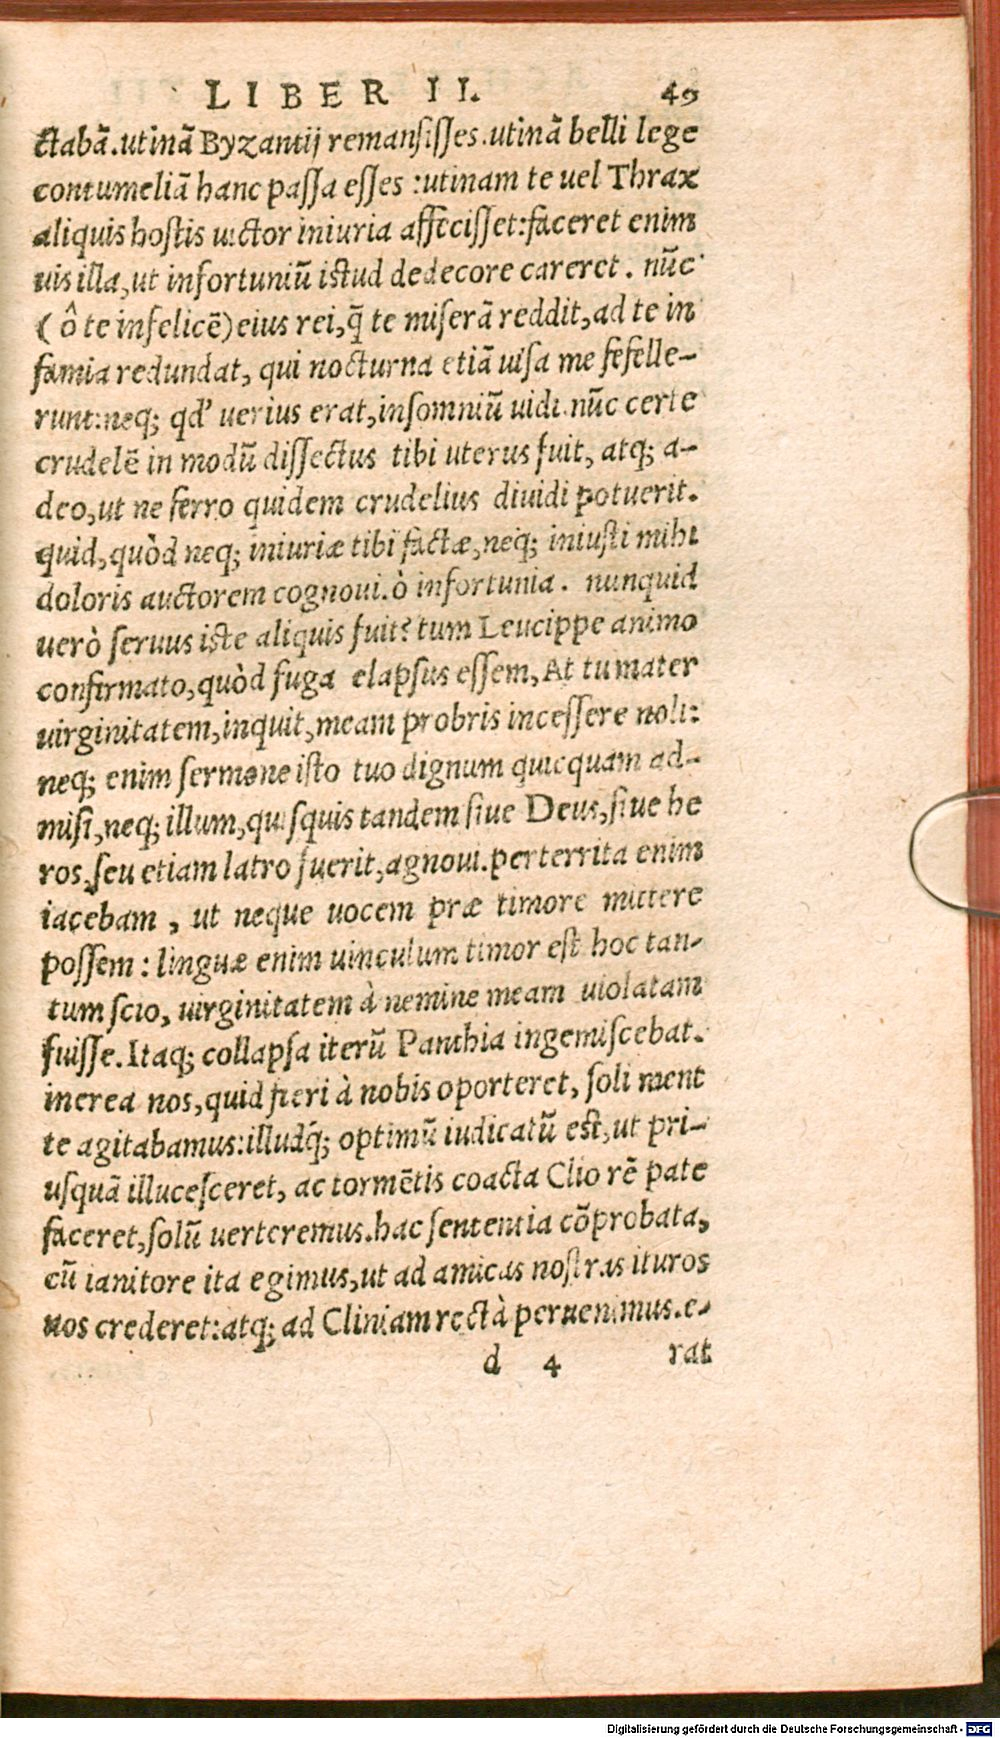 LIBER II. 49
ctabã. utinã Byzantij remansisses. utinã belli lege
contumeliã hanc passa esses : utinam te uel Thrax
aliquis hostis uictor iniuria affecisset: faceret enim
uis illa, ut infortuniũ istud dedecore careret. nũc
( ô te infelicẽ) eius rei, q̃ te miserã reddit, ad te in
famia redundat, qui nocturna etiã uisa me fefelle-
runt: neq; qd' uerius erat, insomniũ uidi. nũc certe
crudelẽ in modũ dissectus tibi uterus fuit, atq; a-
deo, ut ne ferro quidem crudelius diuidi potuerit.
quid, quòd neq; iniuriæ tibi factæ, neq; iniusti mihi
doloris auctorem cognoui. ò infortunia. nunquid
uerò seruus iste aliquis fuit? tum Leucippe animo
confirmato, quòd fuga elapsus essem, At tu mater
uirginitatem, inquit, meam probris incessere noli:
neq; enim sermone isto tuo dignum quicquam ad-
misi, neq; illum, quisquis tandem siue Deus, siue he
ros, seu etiam latro fuerit, agnoui. perterrita enim
iacebam , ut neque uocem præ timore mittere
possem : linguæ enim uinculum timor est hoc tan-
tum scio, uirginitatem à nemine meam uiolatam
fuisse. Itaq; collapsa iterũ Panthia ingemiscebat.
interea nos, quid fieri à nobis oporteret, soli ment
te agitabamus: illudq́; optimũ iudicatũ est, ut pri-
usquã illucesceret, ac tormẽtis coacta Clio rẽ pate
faceret, solũ uerteremus. hac sententia cõprobata,
cũ ianitore ita egimus, ut ad amicas nostras ituros
nos crederet: atq; ad Cliniam rectà peruenimus. e-
d 4 rat
Digitalisierung gefördert durch die Deutsche Forschungsgemeinschaft - DFG